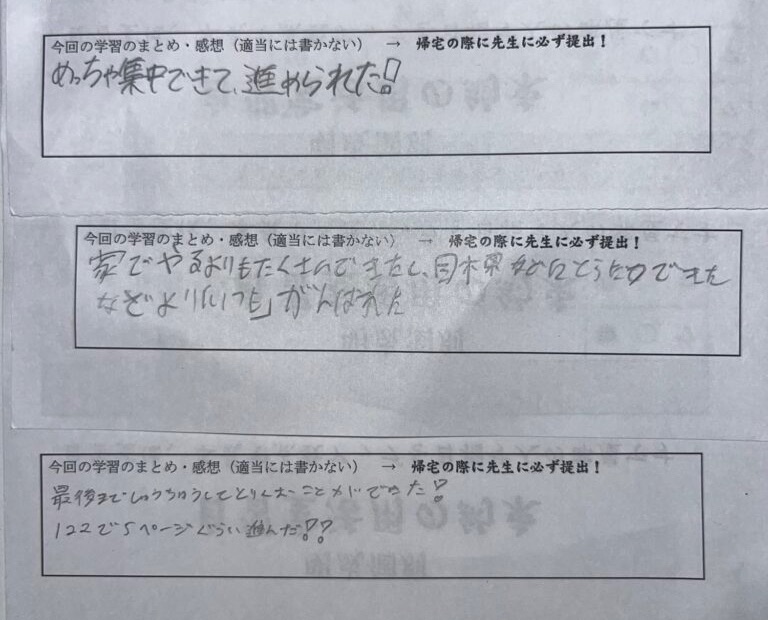 今回の学習のまとめ・感想（適当には書かない） → 帰宅の際に先生に必ず提出！
めっちゃ集中できて、進められた！
今回の学習のまとめ・感想（適当には書かない） → 帰宅の際に先生に必ず提出！
家でやるよりもたくさんできたし、目標
なぞより「いつも」がんばれた
今回の学習のまとめ・感想（適当には書かない） → 帰宅の際に先生に必ず提出！
最後までしゅうちゅうしてとりくむことができた！
122で5ページぐらい進んだ！？